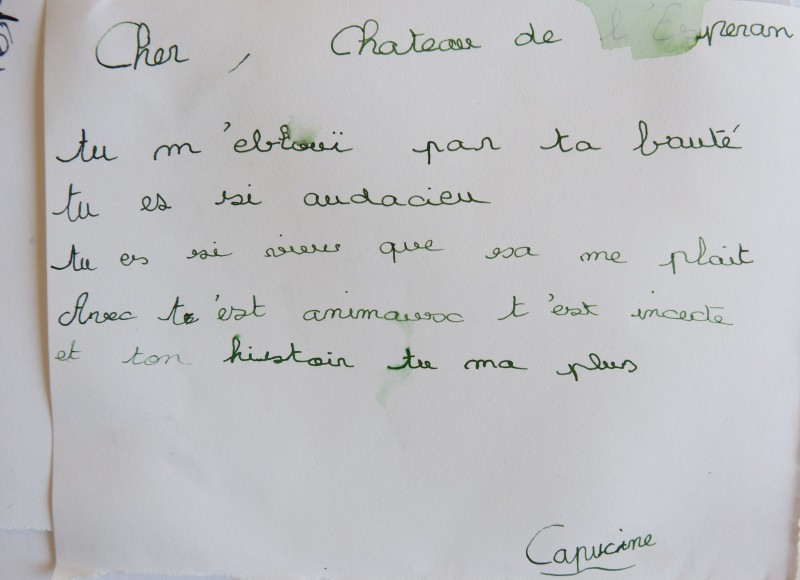 Cher, Chateau de l'Esperan
tu m'eblouï par ta bauté
tu es si audacieu
tu es si vieu que sa me plait
Avec te'est animaux t'est incecte
et ton hiustoir tu ma plus
Capucine